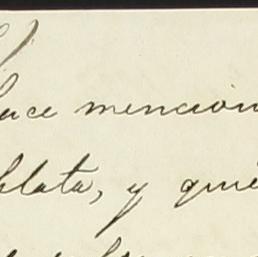 hace mencion
plata, y quie